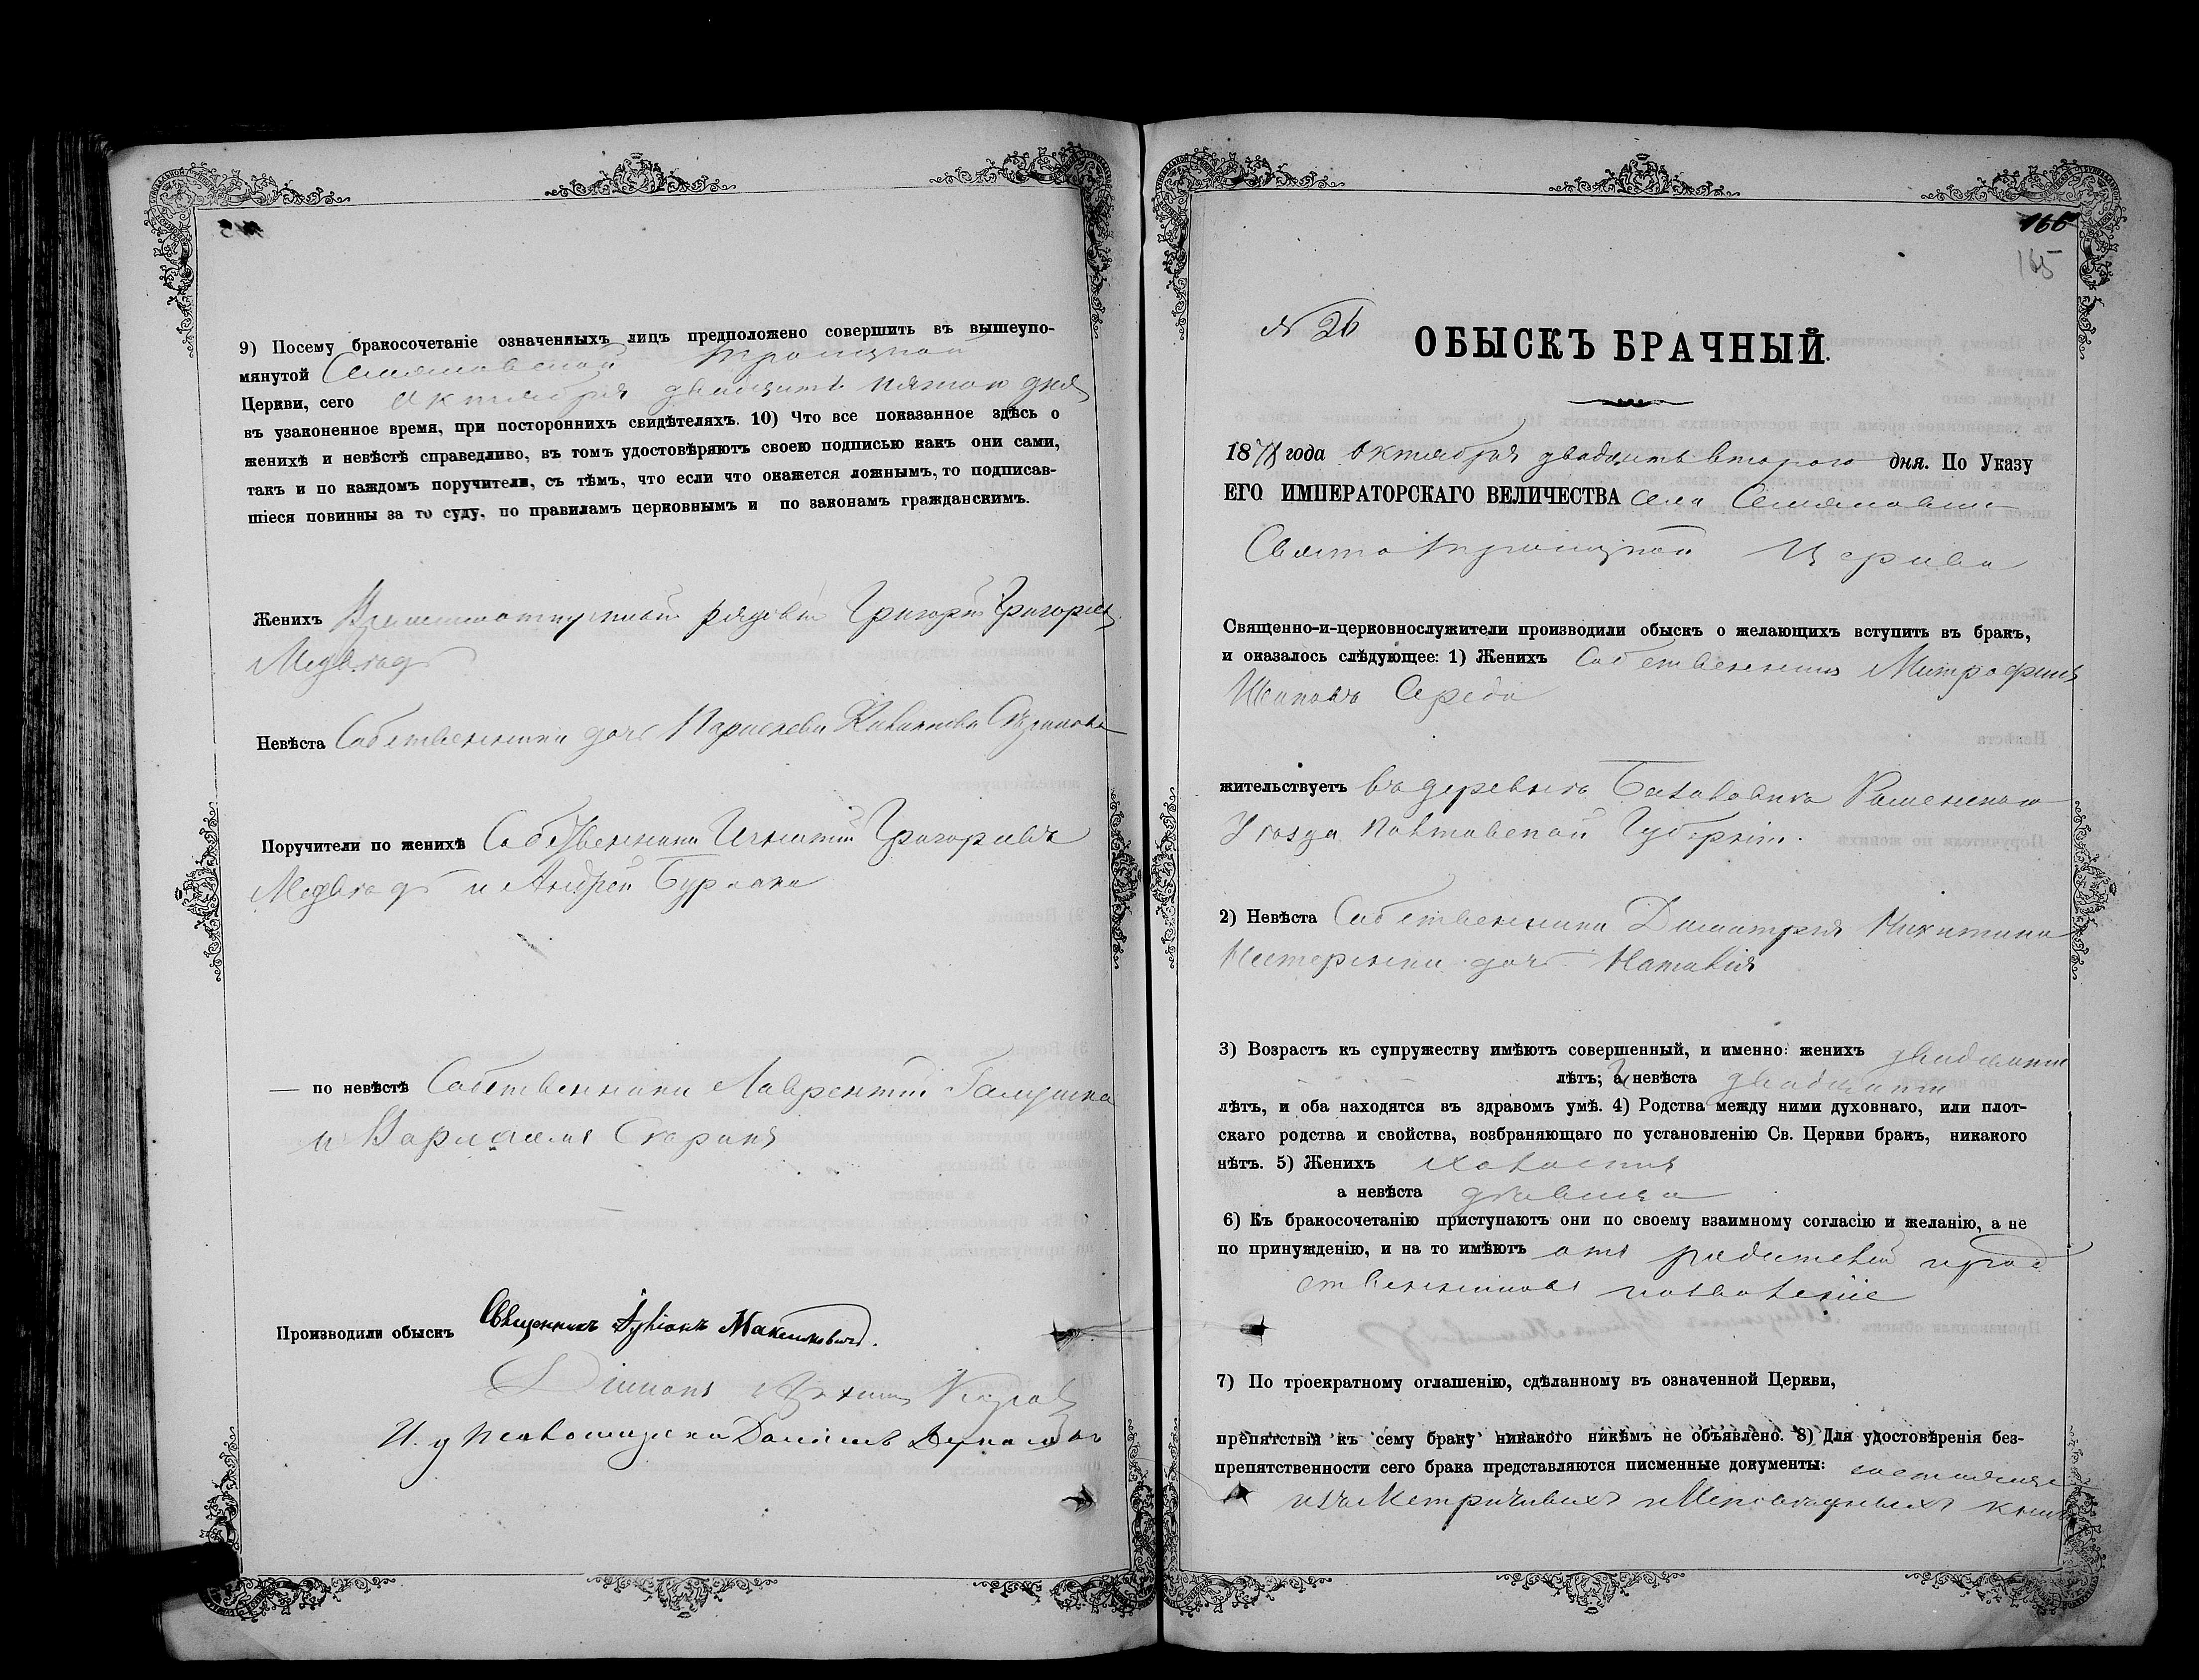 9) Посему бракосочетаніе означенныхъ лицъ предположено совершить въ вышеупо-
мянутой Семяновской Троицкой
Церкви, сего Октября двадцать пятого дня
въ узаконенное время, при постороннихъ свидѣтеляхъ. 10) Что все показанное здѣсь о
женихѣ и невѣстѣ справедливо, въ томъ удостовѣряютъ своею подписью какъ они сами,
такъ и по каждомъ поручители, съ тѣмъ, что если что окажется ложнымъ, то подписав-
шіеся повинны за то суду, по правиламъ церковнымъ и по законамъ гражданскимъ.
Женихъ рядовой Григорій Григорьев
Медвѣдь
Невѣста Собственника дочь
Поручители по женихѣ Собственники Игнатій Григорьевъ
Медвѣдь и Андрей Бурлака
— по невѣстѣ Собственники Лаврентій Галушка
и Варлаамъ Скорикъ
Производили обыскъ Священникъ Максимовичъ.
Діаконъ
И. д. Псаломщика
166
165
№ 26
ОБЫСКЪ БРАЧНЫЙ.
1878 года Октября двадцать второго дня. По Указу
ЕГО ИМПЕРАТОРСКАГО ВЕЛИЧЕСТВА села Семяновки
Свято Троицкой Церкви
Священно-и-церковнослужители производили обыскъ о желающихъ вступить въ бракъ,
и оказалось слѣдующее: 1) Женихъ Собственникъ Митрофанъ
Середа
жительствуетъ въ деревнѣ Роменского
Уѣзда Полтавской Губерніи.
2) Невѣста Собственника Димитрія Никитина
Нестеренка дочь Наталія
3) Возрастъ къ супружеству имѣютъ совершенный, и именно: женихъ двадцати
лѣтъ; а невѣста двадцати
лѣтъ, и оба находятся въ здравомъ умѣ. 4) Родства между ними духовнаго, или плот-
скаго родства и свойства, возбраняющаго по установленію Св. Церкви бракъ, никакого
нѣтъ. 5) Женихъ холостъ
а невѣста дѣвица
6) Къ бракосочетанію приступаютъ они по своему взаимному согласію и желанію, а не
по принужденію, и на то имѣютъ отъ родителей и род
ственниковъ позволеніе
7) По троекратному оглашенію, сдѣланному въ означенной Церкви,
препятствій къ сему браку никакого никѣмъ не объявлено. 8) Для удостовѣренія без-
препятственности сего брака представляются писменные документы:
изъ Метричныхъ и Исповѣдныхъ книгъ